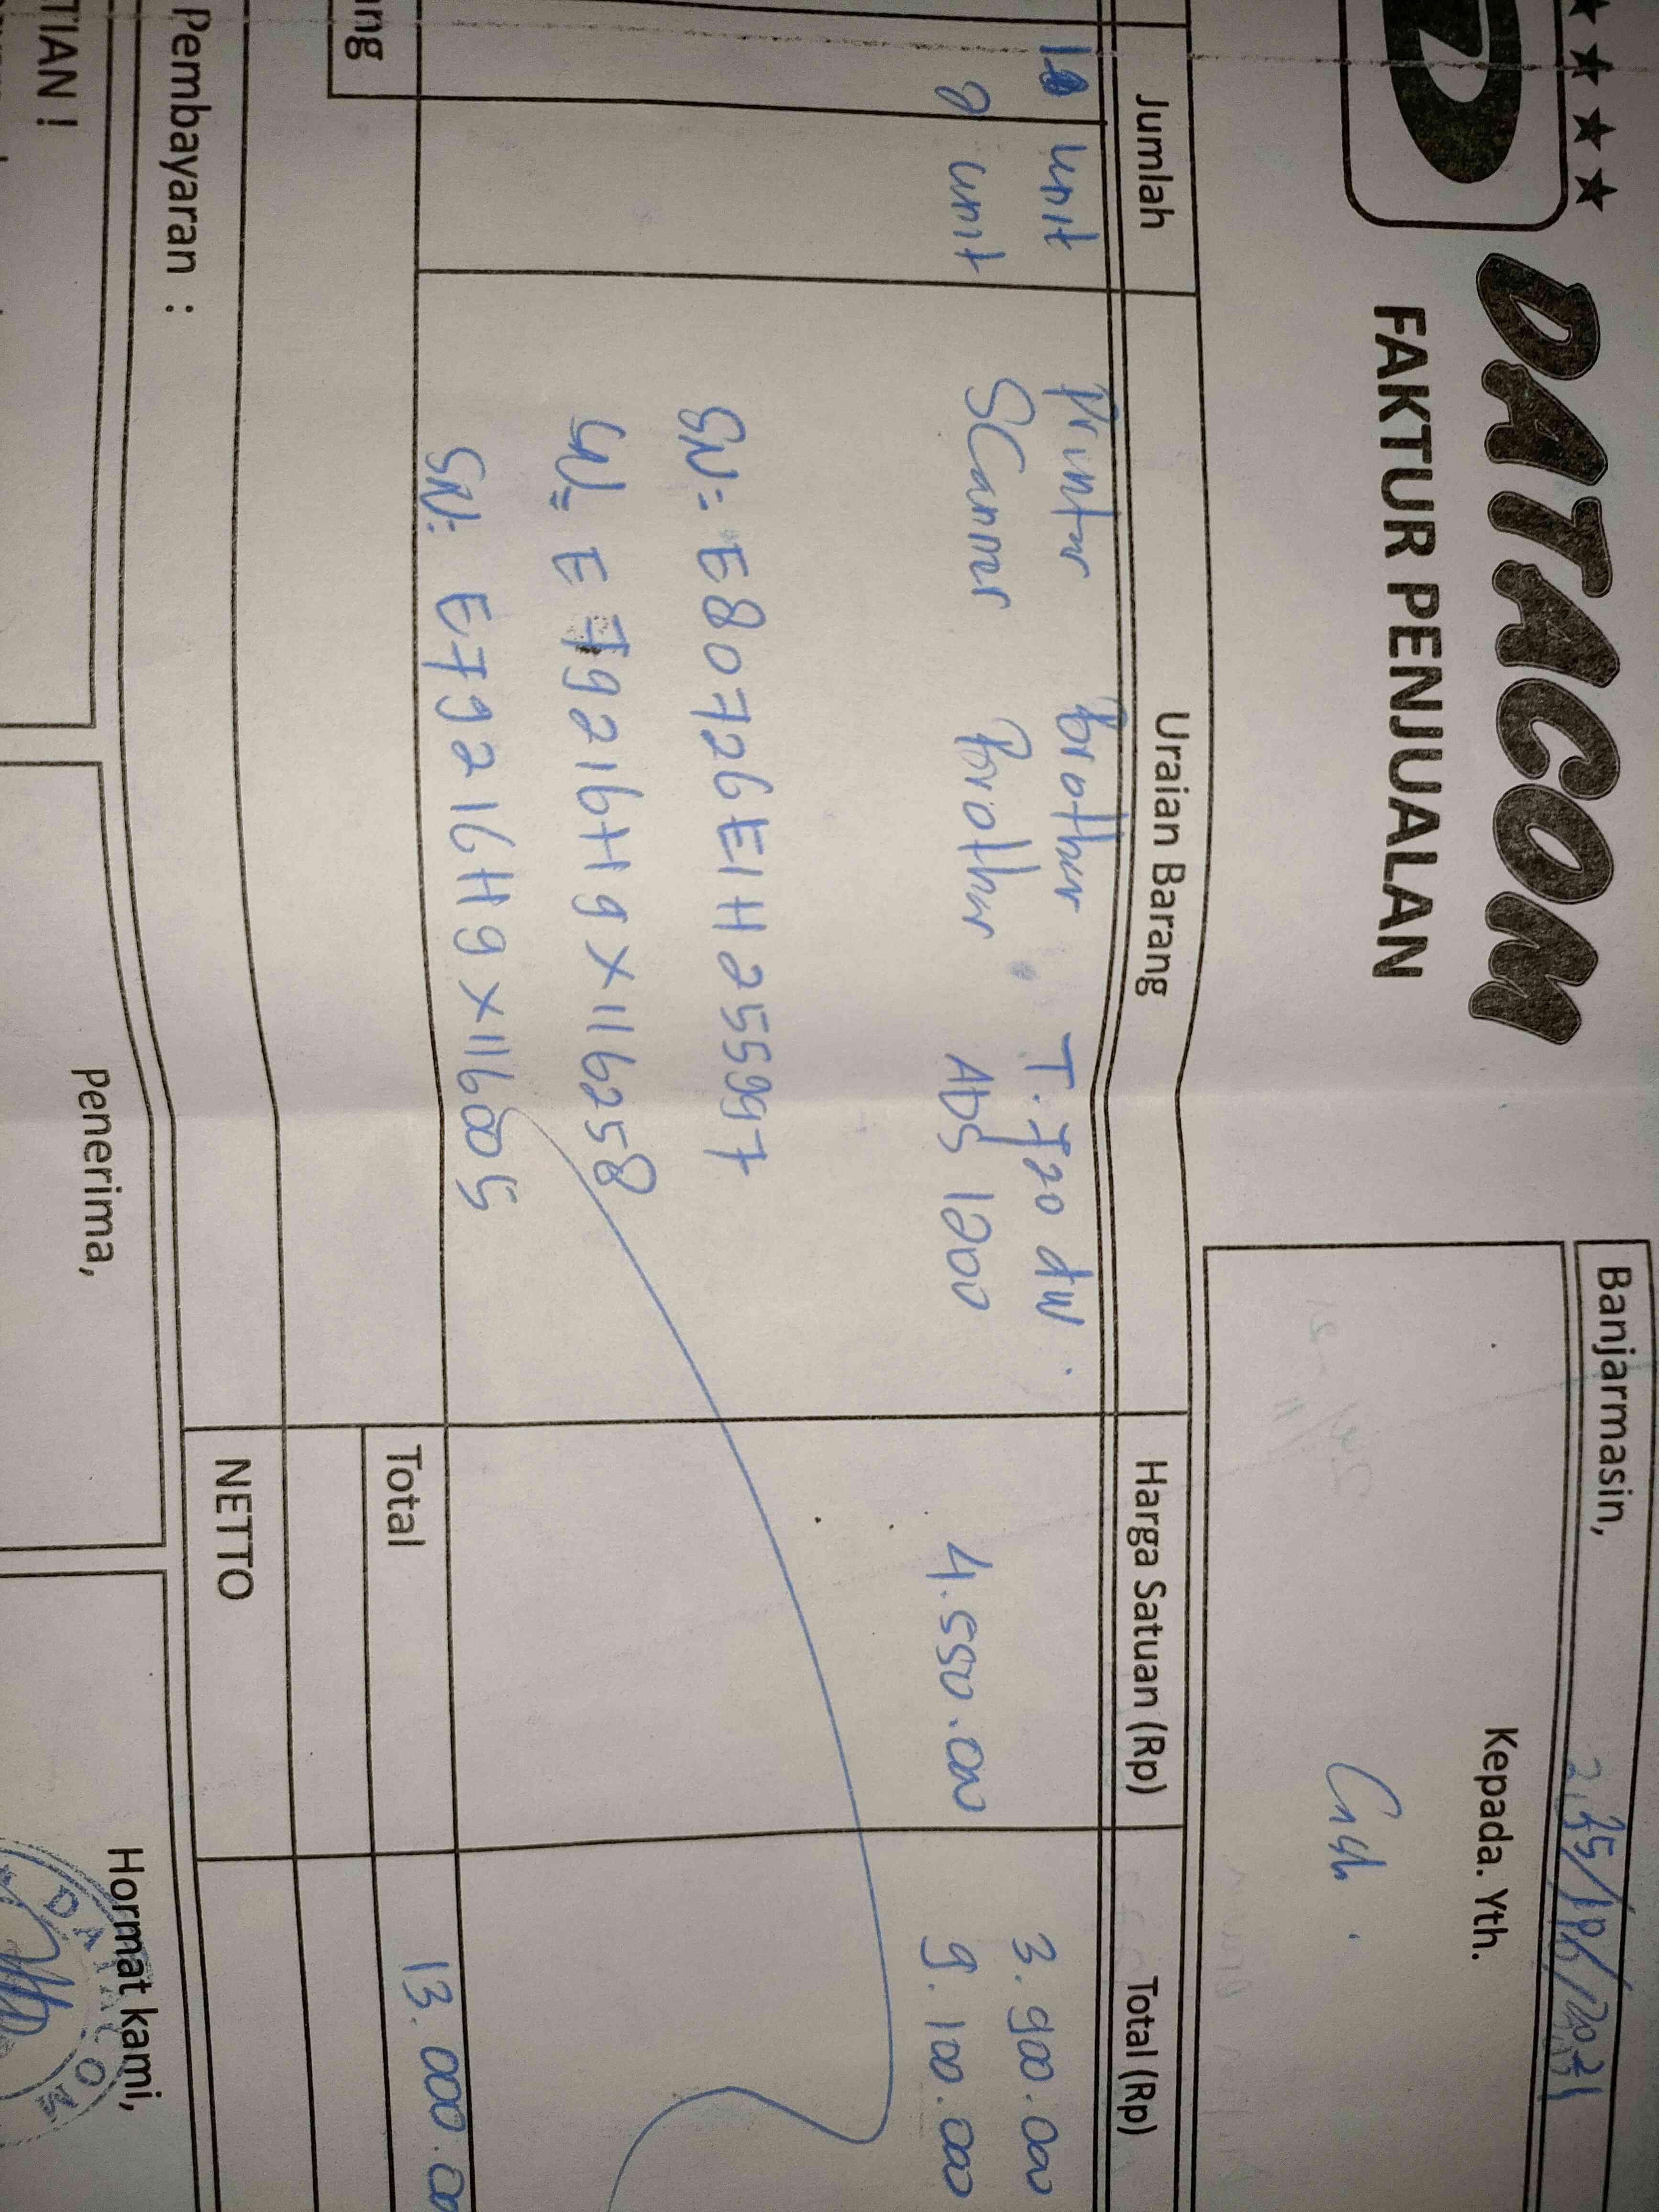 DATACOM
FAKTUR PENJUALAN
Banjarmasin,
Kepada. Yth.
Cash.
Jumlah Uraian Barang Harga Satuan (Rp) Total (Rp)
1 unit Printer Brother T. 720 dw. 3.900.000
2 unit SCanner Brother ADS 1200 4.550.000 9.100.000
SN: E80726E1H255997
SN= E79216H9X116258
SN: E79216H9X116005
ang
Total 13.000.00
NETTO
Pembayaran :
TIAN !
Penerima,
Hormat kami,
DATACOM